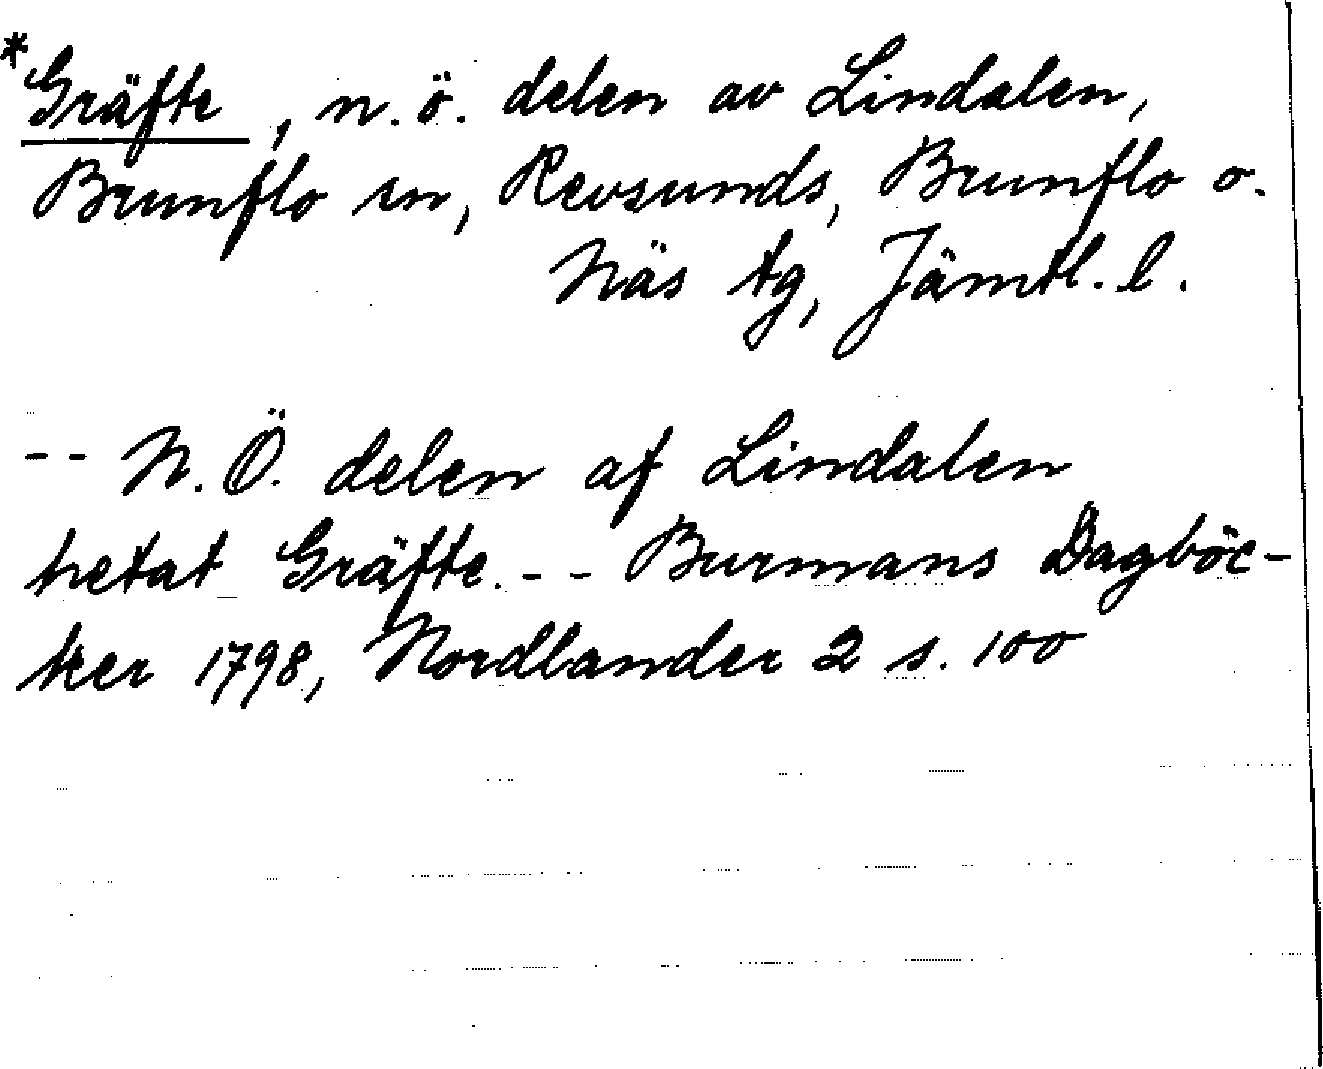 *Gräfte, n.ö. delen av Lindalen,
Brunflo sn, Revsunds, Brunflo o.
Näs tg, Jämtl. l.
-- N.Ö. delen af Lindalen
hetat Gräfte. -- Burmans Dagböc-
ker 1798, Nordlander 2 s. 100